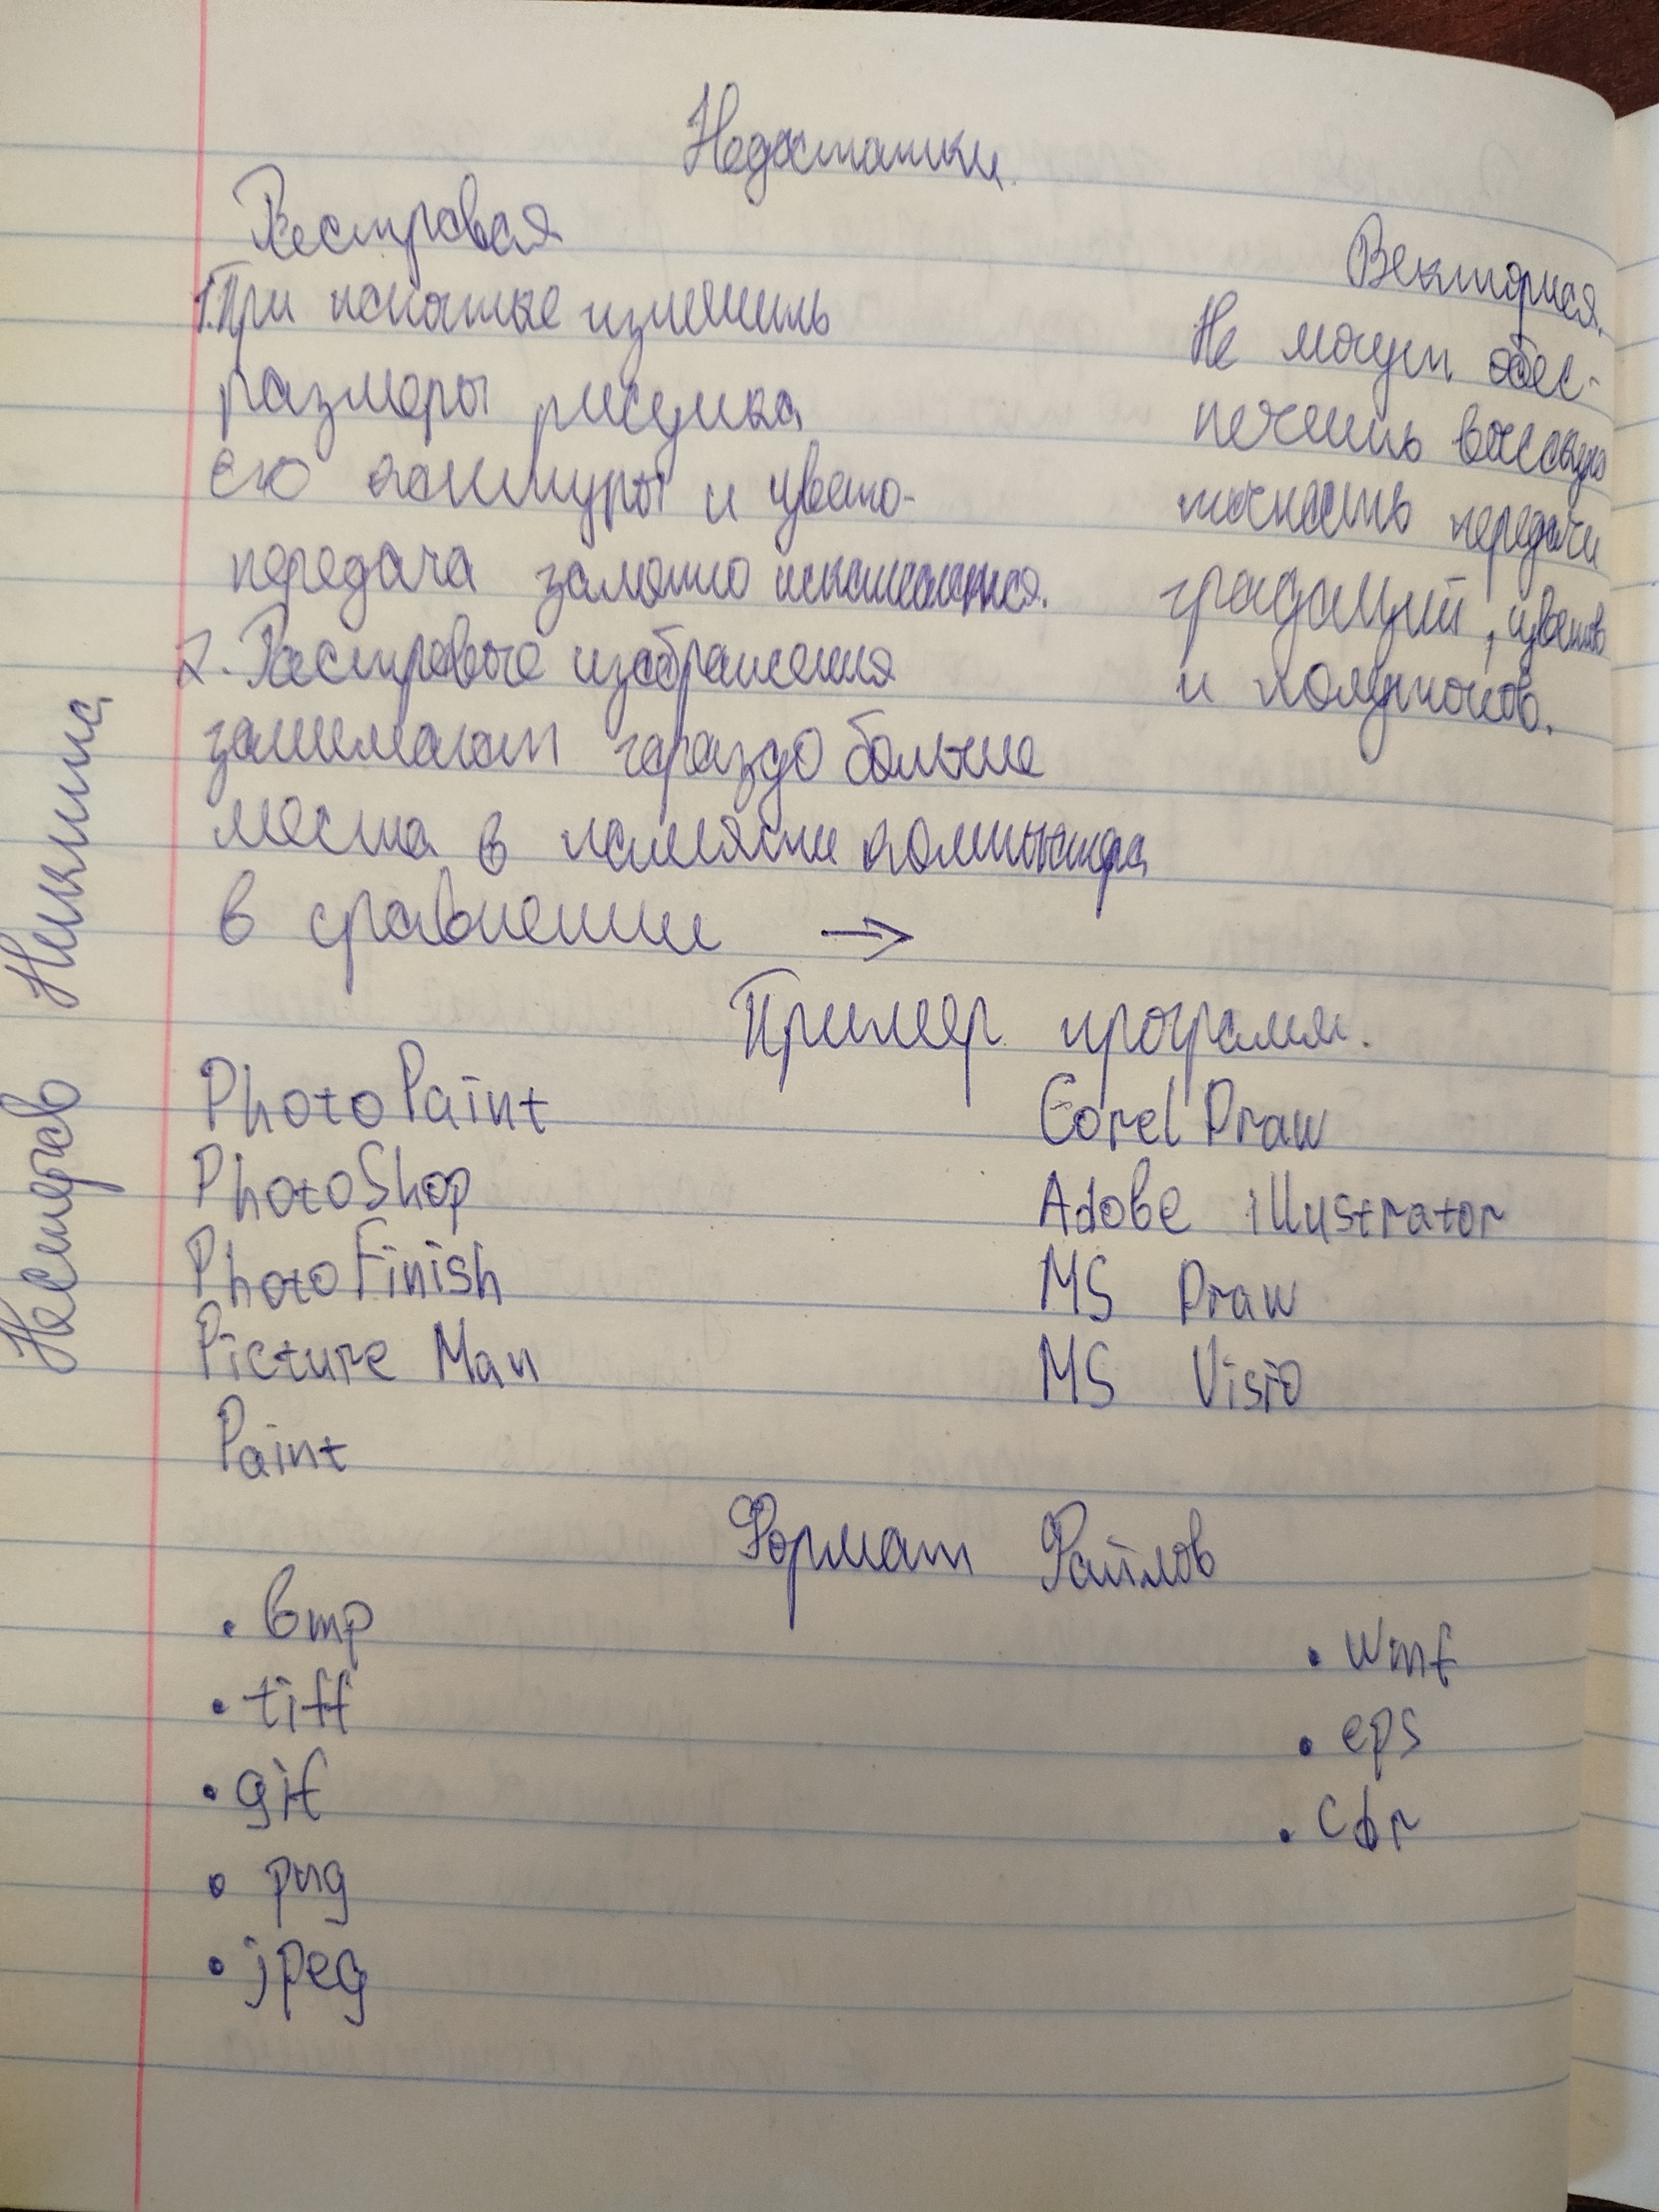 Недостатки.
Растровая
Векторная.
1. При попытке изменить
размеры рисунка
его контуры и цвето-
передача заметно искажается.
2. Растровые изображения
занимают гораздо больше
места в памяти компьютера
в сравнении →
Не могут обес-
печить высокую
точность передачи
градаций, цветов
и полутонов.
Пример программ.
PhotoPaint
PhotoShop
PhotoFinish
Picture Man
Paint
Corel Draw
Adobe illustrator
MS Draw
MS Visio
Формат Файлов
• bmp
• tiff
• gif
• png
• jpeg
• wmf
• eps
• cdr
Нестеров Никита